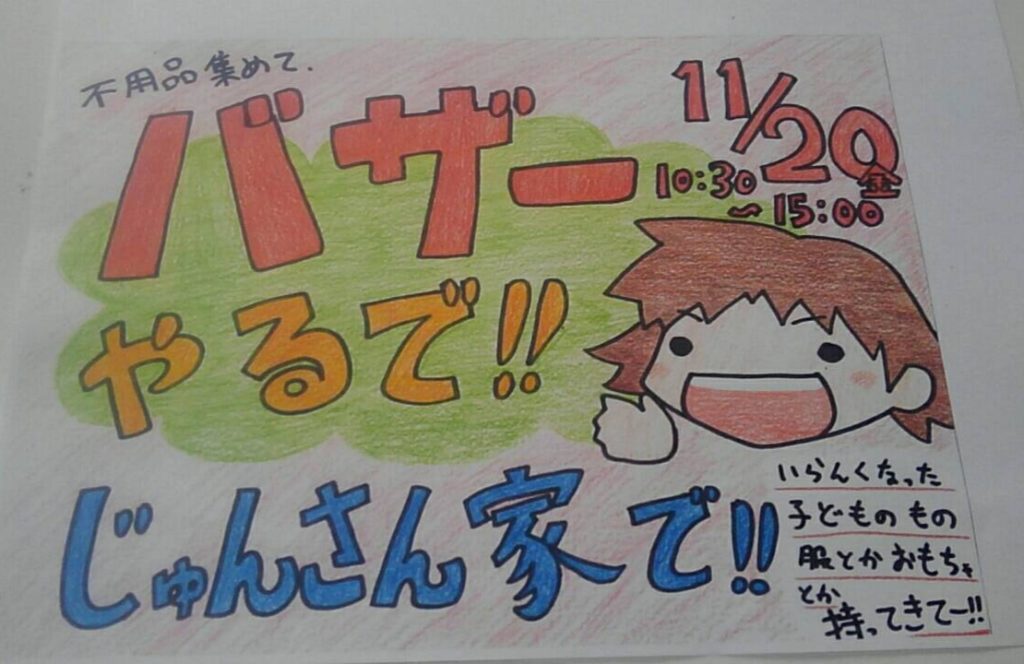 不用品集めて.
バザー
やるで!!
11/20金
10:30
~15:00
じゅんさん家で!!
いらんくなった
子どものもの
服とかおもちゃ
とか
持ってきてー!!